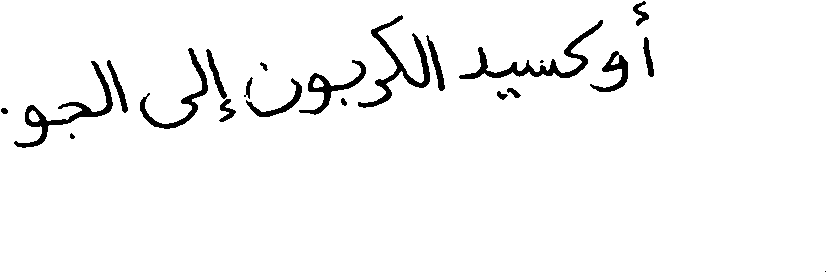 أوكسيد الكربون إلى الجو.